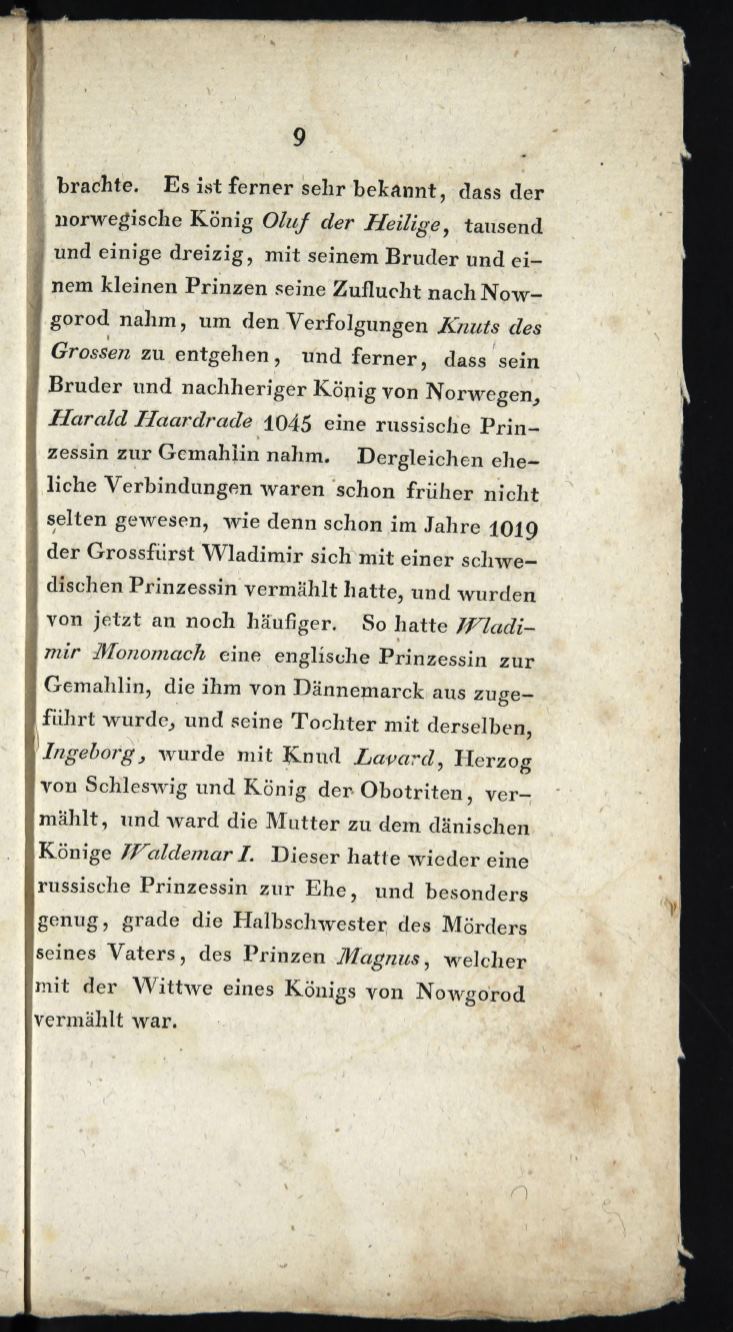 9
brachte. Es ist ferner sehr bekannt, dass der
norwegische König Oluf der Heilige, tausend
und einige dreizig, mit seinem Bruder und ei-
nem kleinen Prinzen seine Zuflucht nach Now-
gorod nahm, um den Verfolgungen Knuts des
Grossen zu entgehen, und ferner, dass sein
Bruder und nachheriger König von Norwegen,
Harald Haardrade 1045 eine russische Prin-
zessin zur Gemahlin nahm. Dergleichen ehe-
liche Verbindungen waren schon früher nicht
selten gewesen, wie denn schon im Jahre 1019
der Grossfürst Wladimir sich mit einer schwe-
dischen Prinzessin vermählt hatte, und wurden
von jetzt an noch häufiger. So hatte Wladi-
mir Monomach eine englische Prinzessin zur
Gemahlin, die ihm von Dännemarck aus zuge-
führt wurde, und seine Tochter mit derselben,
Ingeborg, wurde mit Knud Lavard, Herzog
von Schleswig und König der Obotriten, ver-
mählt, und ward die Mutter zu dem dänischen
Könige Waldemar I. Dieser hatte wieder eine
russische Prinzessin zur Ehe, und besonders
genug, grade die Halbschwester des Mörders
seines Vaters, des Prinzen Magnus, welcher
mit der Wittwe eines Königs von Nowgorod
vermählt war.